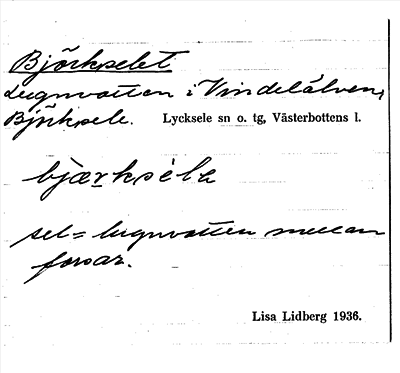 Björkselet
Lugnvatten i Vindelälven,
Björksele. Lycksele sn o. tg, Västerbottens l.
bjærksèla
sel = lugnvatten mellan
forsar.
Lisa Lidberg 1936.